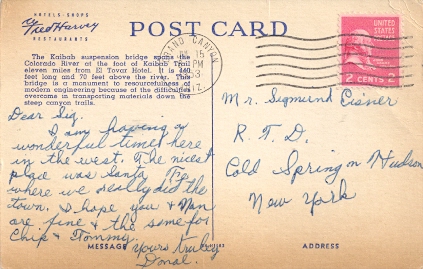 HOTELS · SHOPS
Fred Harvey
RESTAURANTS
POST CARD
The Kaibab suspension bridge spans the
Colorado River at the foot of Kaibab Trail
eleven miles from El Tovar Hotel. It is 440
feet long and 70 feet above the river. This
bridge is a monument to resourcefulness of
modern engineering because of the difficulties
overcome in transporting materials down the
steep canyon trails.
GRAND CANYON
15
PM
ARIZ.
UNITED STATES
2 CENTS 2
Dear Sig.
I am having a
wonderful time here
in the west. The nicest
place was Santa Fe
where we really did the
town. I hope you & Nan
are fine & the same for
Chip & Tommy.
Yours truly
Donal.
Mr. Sigmund Eisner
R. F. D.
Cold Spring on Hudson
New York
MESSAGE
ADDRESS